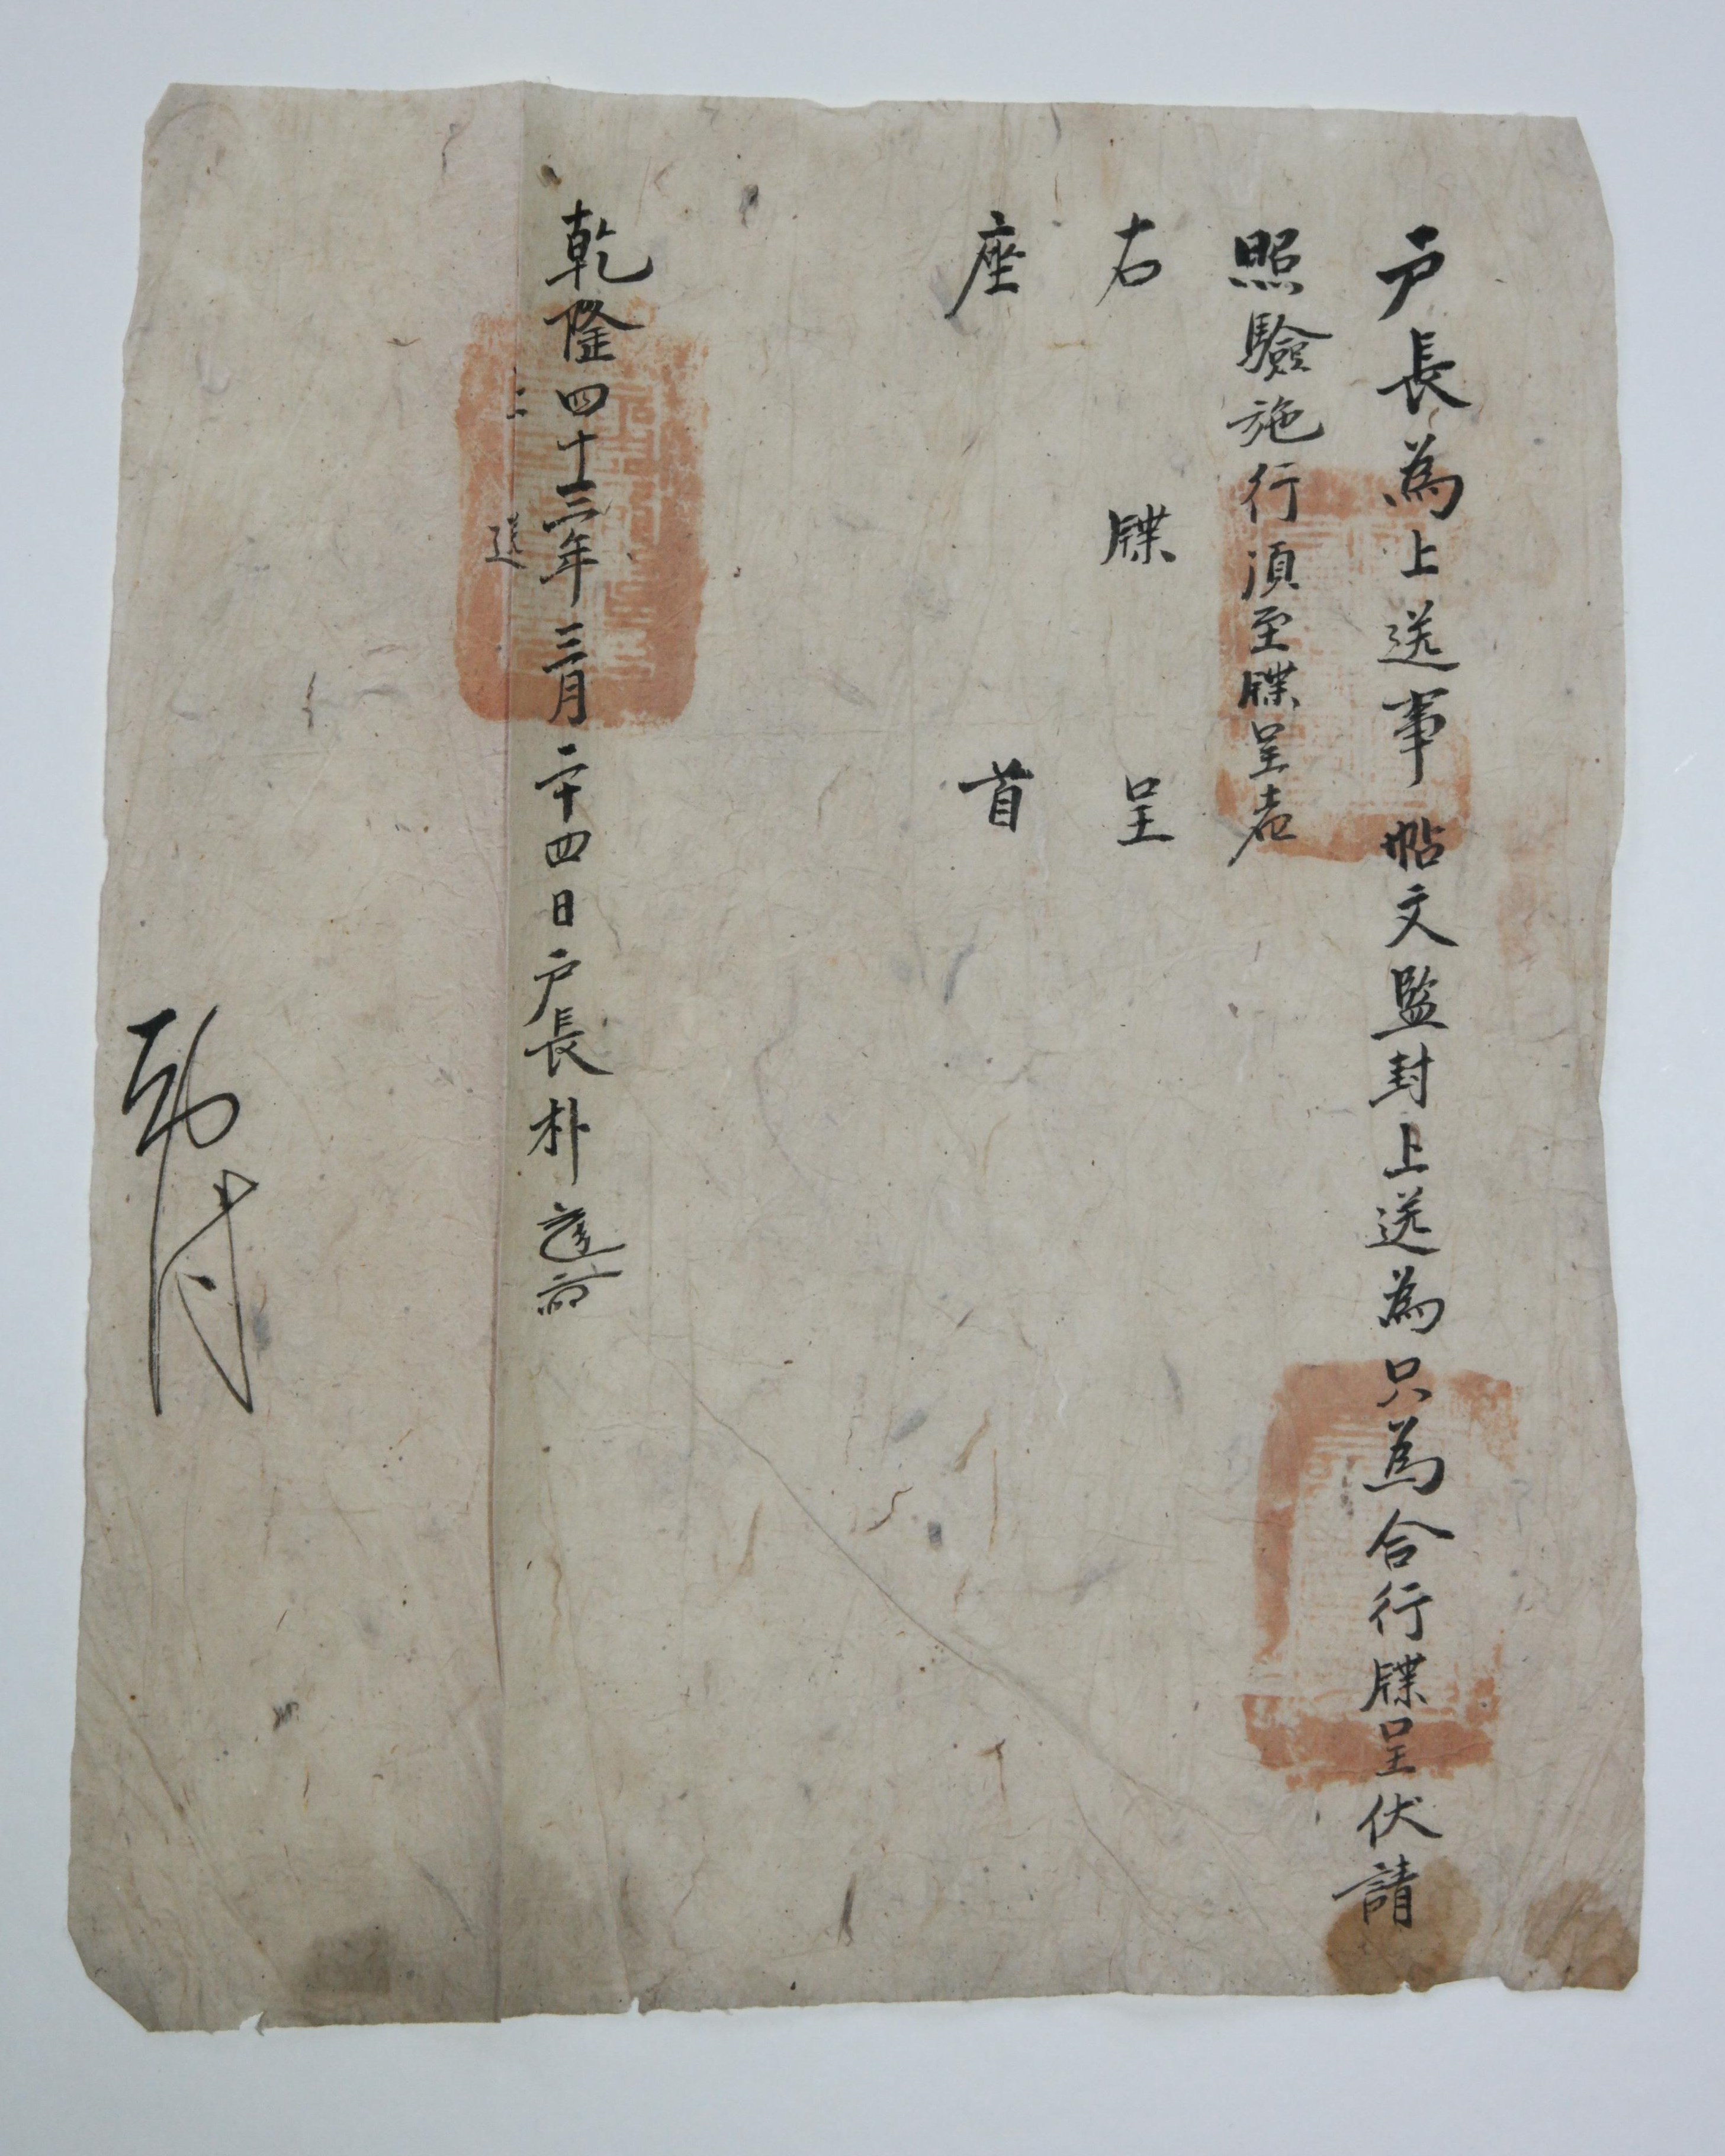 戶長為上送事帖文監封上送為只為合行牒呈伏請
照驗施行湏至牒呈者
右牒呈
座首
乾隆四十三年三月二十四日戶長朴
上送